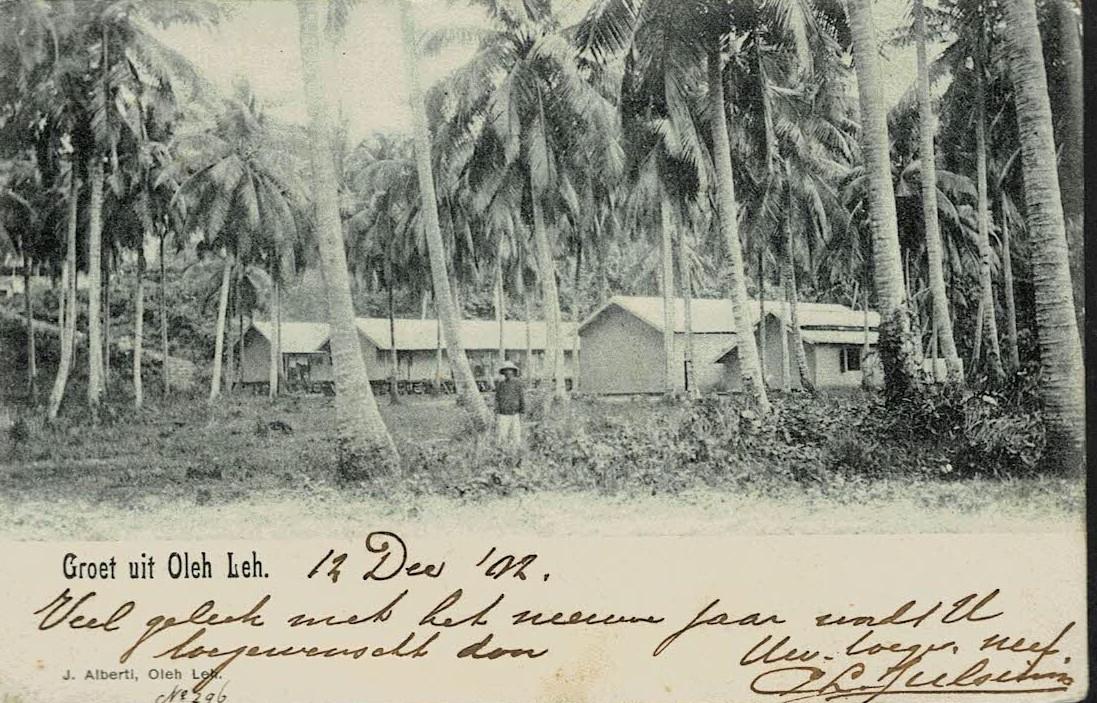 Groet uit Oleh Leh. 12 Dec '02.
Veel geluk met het nieuwe jaar wordt U
toegewenscht door Uw. toegen. neef.
J. Alberti, Oleh Leh.
№ 296